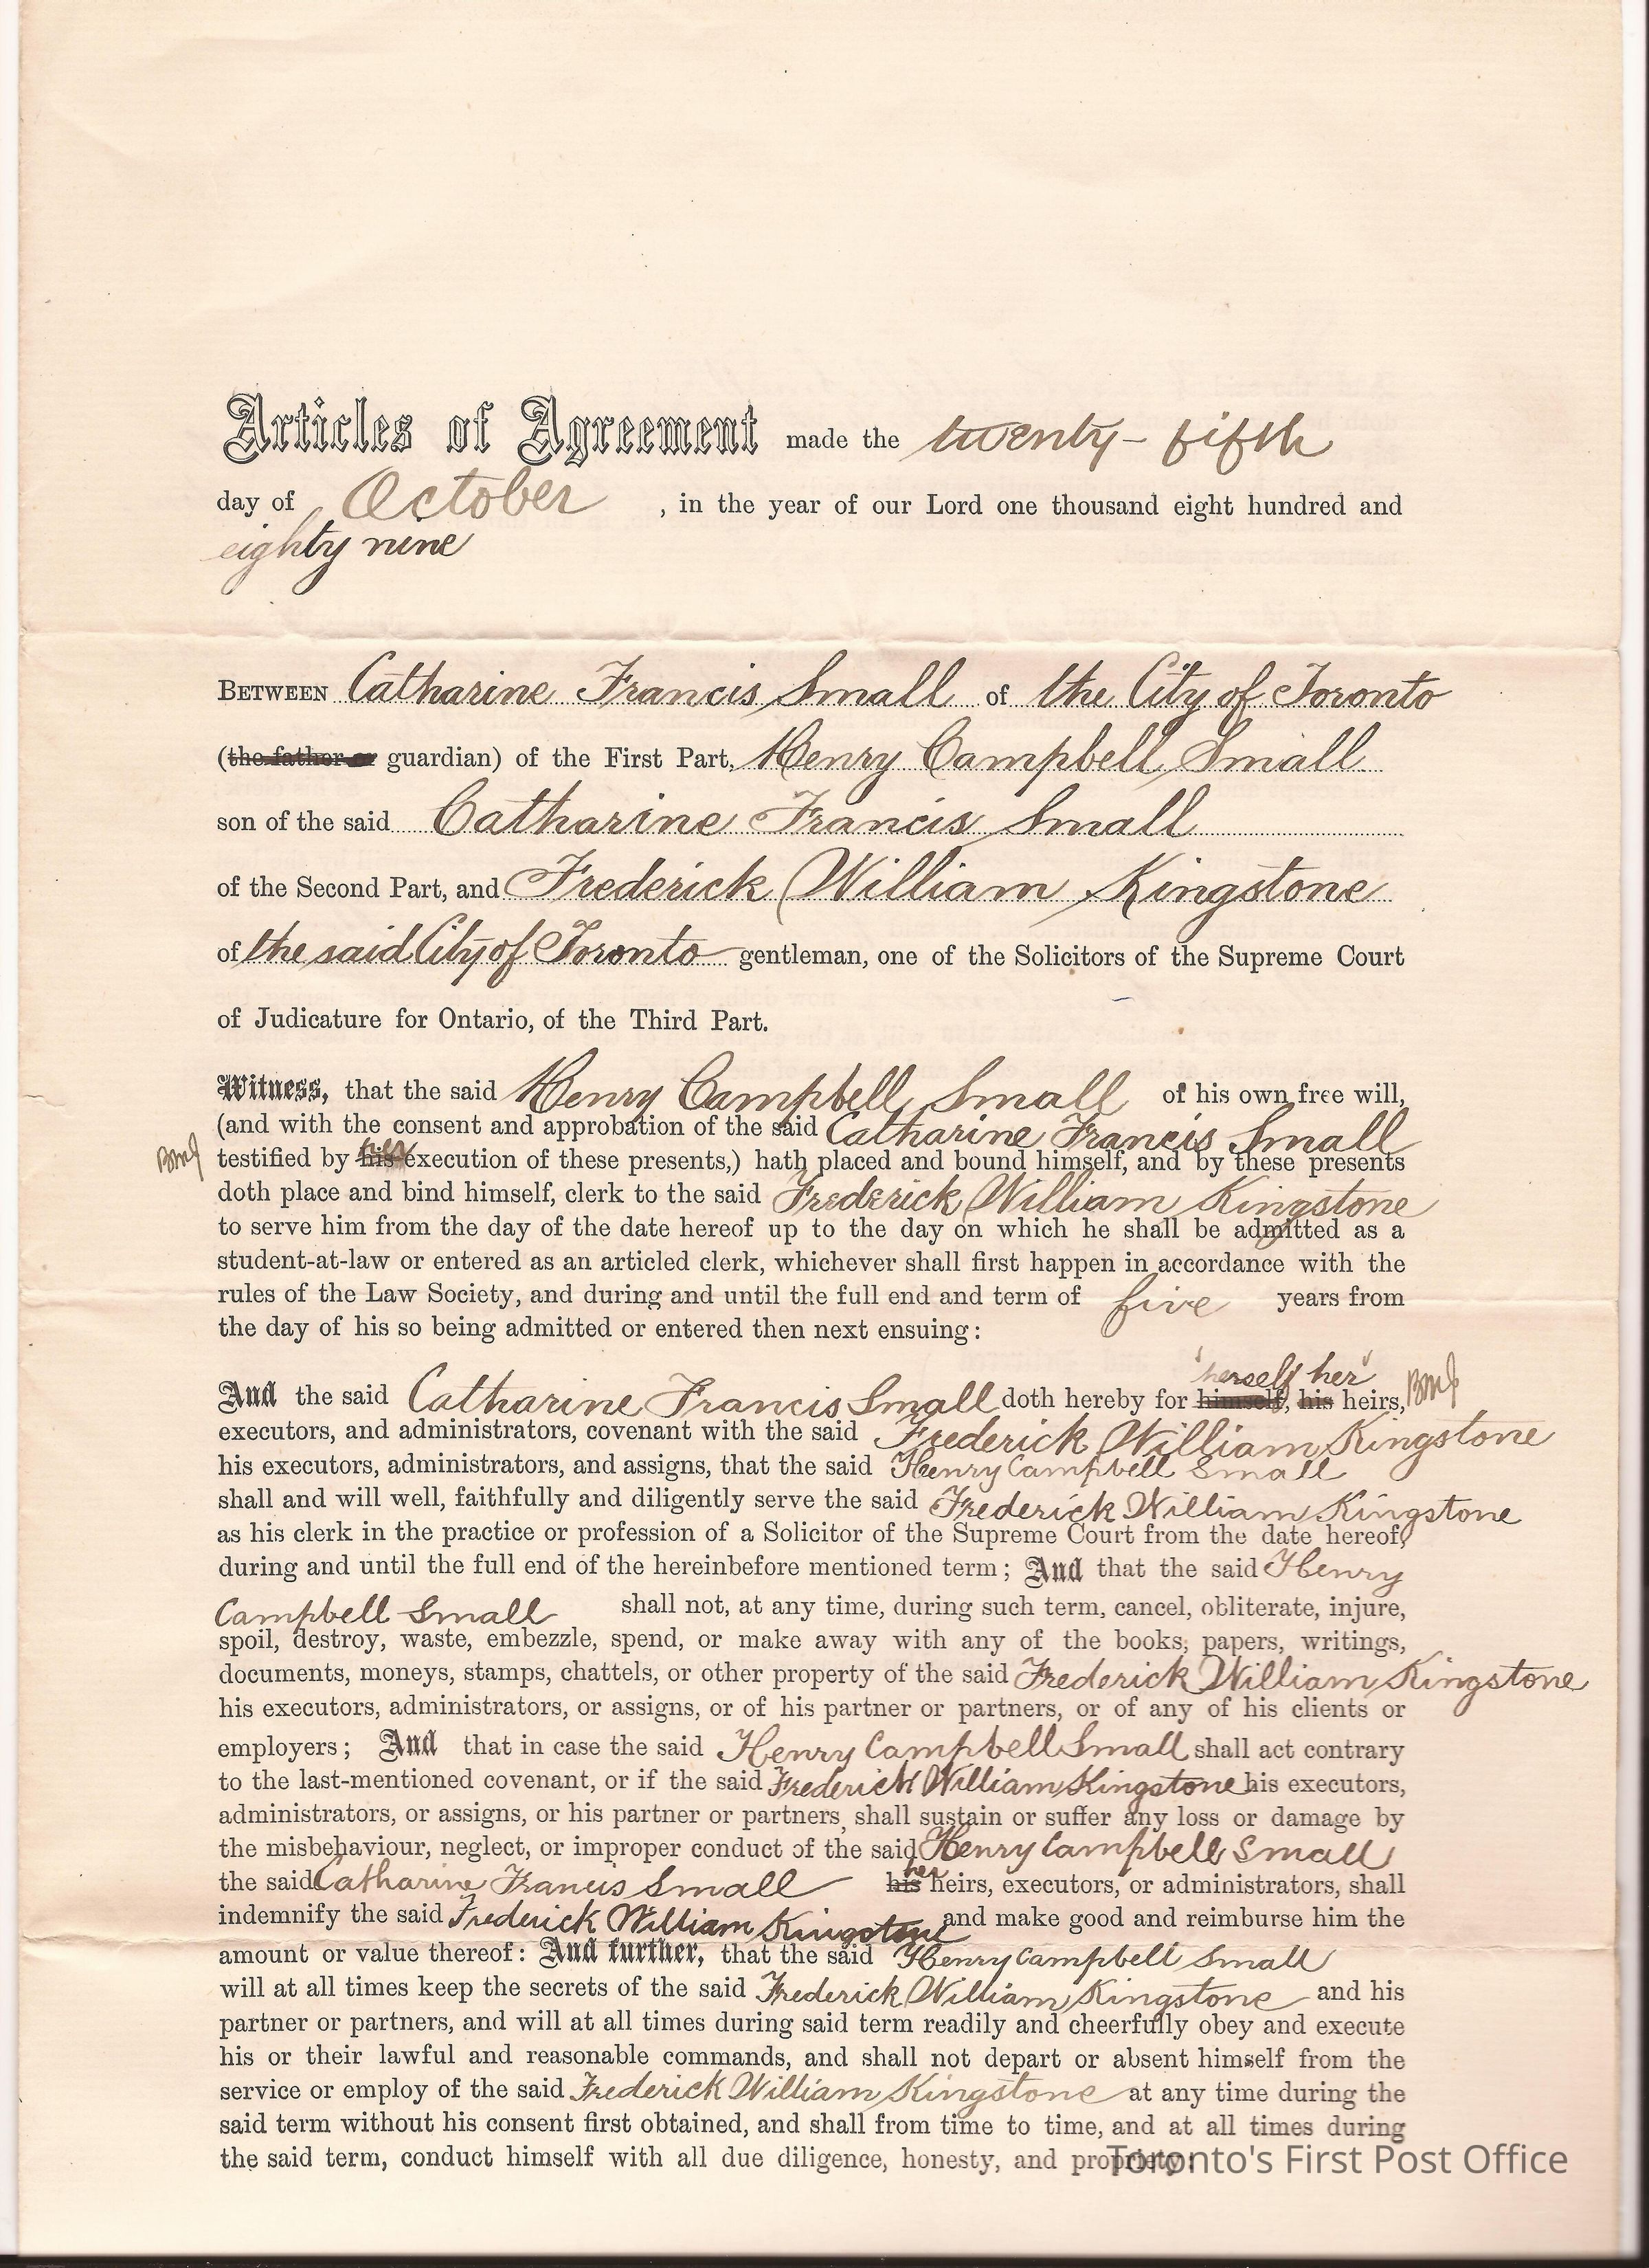 Articles of Agreement made the twenty-fifth
day of October , in the year of our Lord one thousand eight hundred and
eighty nine
BETWEEN Catharine Francis Small of the City of Toronto
(the father or guardian) of the First Part, Henry Campbell Small
son of the said Catharine Francis Small
of the Second Part, and Frederick William Kingstone
of the said City of Toronto gentleman, one of the Solicitors of the Supreme Court
of Judicature for Ontario, of the Third Part.
Witness, that the said Henry Campbell Small of his own free will,
(and with the consent and approbation of the said Catharine Francis Small
testified by his her execution of these presents,) hath placed and bound himself, and by these presents
doth place and bind himself, clerk to the said Frederick William Kingstone
to serve him from the day of the date hereof up to the day on which he shall be admitted as a
student-at-law or entered as an articled clerk, whichever shall first happen in accordance with the
rules of the Law Society, and during and until the full end and term of five years from
the day of his so being admitted or entered then next ensuing:
herself her
And the said Catharine Francis Small doth hereby for himself, his heirs,
executors, and administrators, covenant with the said Frederick William Kingstone
his executors, administrators, and assigns, that the said Henry Campbell Small
shall and will well, faithfully and diligently serve the said Frederick William Kingstone
as his clerk in the practice or profession of a Solicitor of the Supreme Court from the date hereof,
during and until the full end of the hereinbefore mentioned term; And that the said Henry
Campbell Small shall not, at any time, during such term, cancel, obliterate, injure,
spoil, destroy, waste, embezzle, spend, or make away with any of the books, papers, writings,
documents, moneys, stamps, chattels, or other property of the said Frederick William Kingstone
his executors, administrators, or assigns, or of his partner or partners, or of any of his clients or
employers; And that in case the said Henry Campbell Small shall act contrary
to the last-mentioned covenant, or if the said Frederick William Kingstone his executors,
administrators, or assigns, or his partner or partners, shall sustain or suffer any loss or damage by
the misbehaviour, neglect, or improper conduct of the said Henry Campbell Small
the said Catharine Francis Small his her heirs, executors, or administrators, shall
indemnify the said Frederick William Kingstone and make good and reimburse him the
amount or value thereof: And further, that the said Henry Campbell Small
will at all times keep the secrets of the said Frederick William Kingstone and his
partner or partners, and will at all times during said term readily and cheerfully obey and execute
his or their lawful and reasonable commands, and shall not depart or absent himself from the
service or employ of the said Frederick William Kingstone at any time during the
said term without his consent first obtained, and shall from time to time, and at all times during
the said term, conduct himself with all due diligence, honesty, and propriety:
Toronto's First Post Office